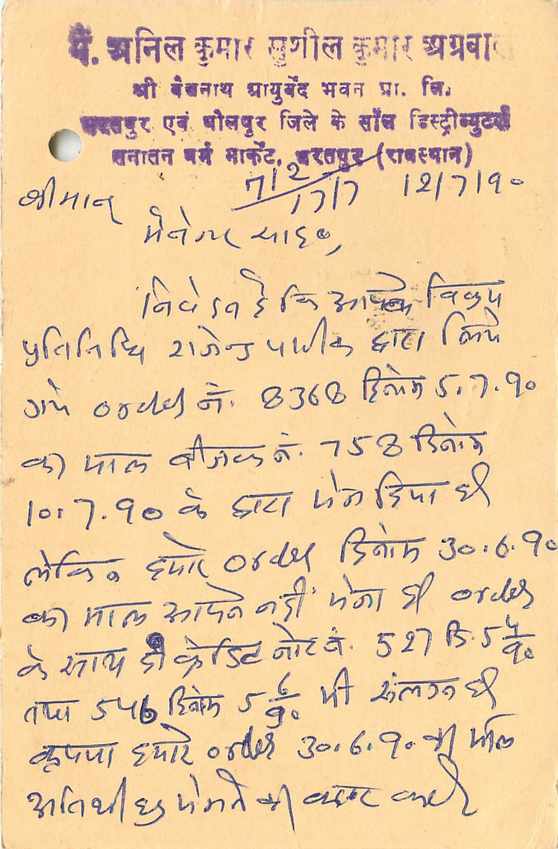 मै. अनिल कुमार सुशील कुमार अग्रवाल
श्री बैद्यनाथ आयुर्वेद भवन प्रा. लि.
भरतपुर एवं धौलपुर जिले के सोल डिस्ट्रीब्युटर्स
सनातन धर्म मार्केट, भरतपुर (राजस्थान)
श्रीमान 17/7 12/7/90
मैनेजर साहब,
निवेदन है कि आपके विक्रय
प्रतिनिधि राजेन्द्र पारीक द्वारा लिये
गये order नं. 8368 दिनांक 5.7.90
का माल बीजक नं. 758 दिनांक
10.7.90 के द्वारा भेज दिया है
लेकिन हमारे order दिनांक 30.6.90
का माल आपने नहीं भेजा है order
के साथ ही क्रेडिट नोट नं. 527 दि. 5 4/90
तथा 546 दिनांक 5 6/90 भी संलग्न है
कृपया हमारे order 30.6.90 का माल
अतिशीघ्र भेजने का कष्ट करें